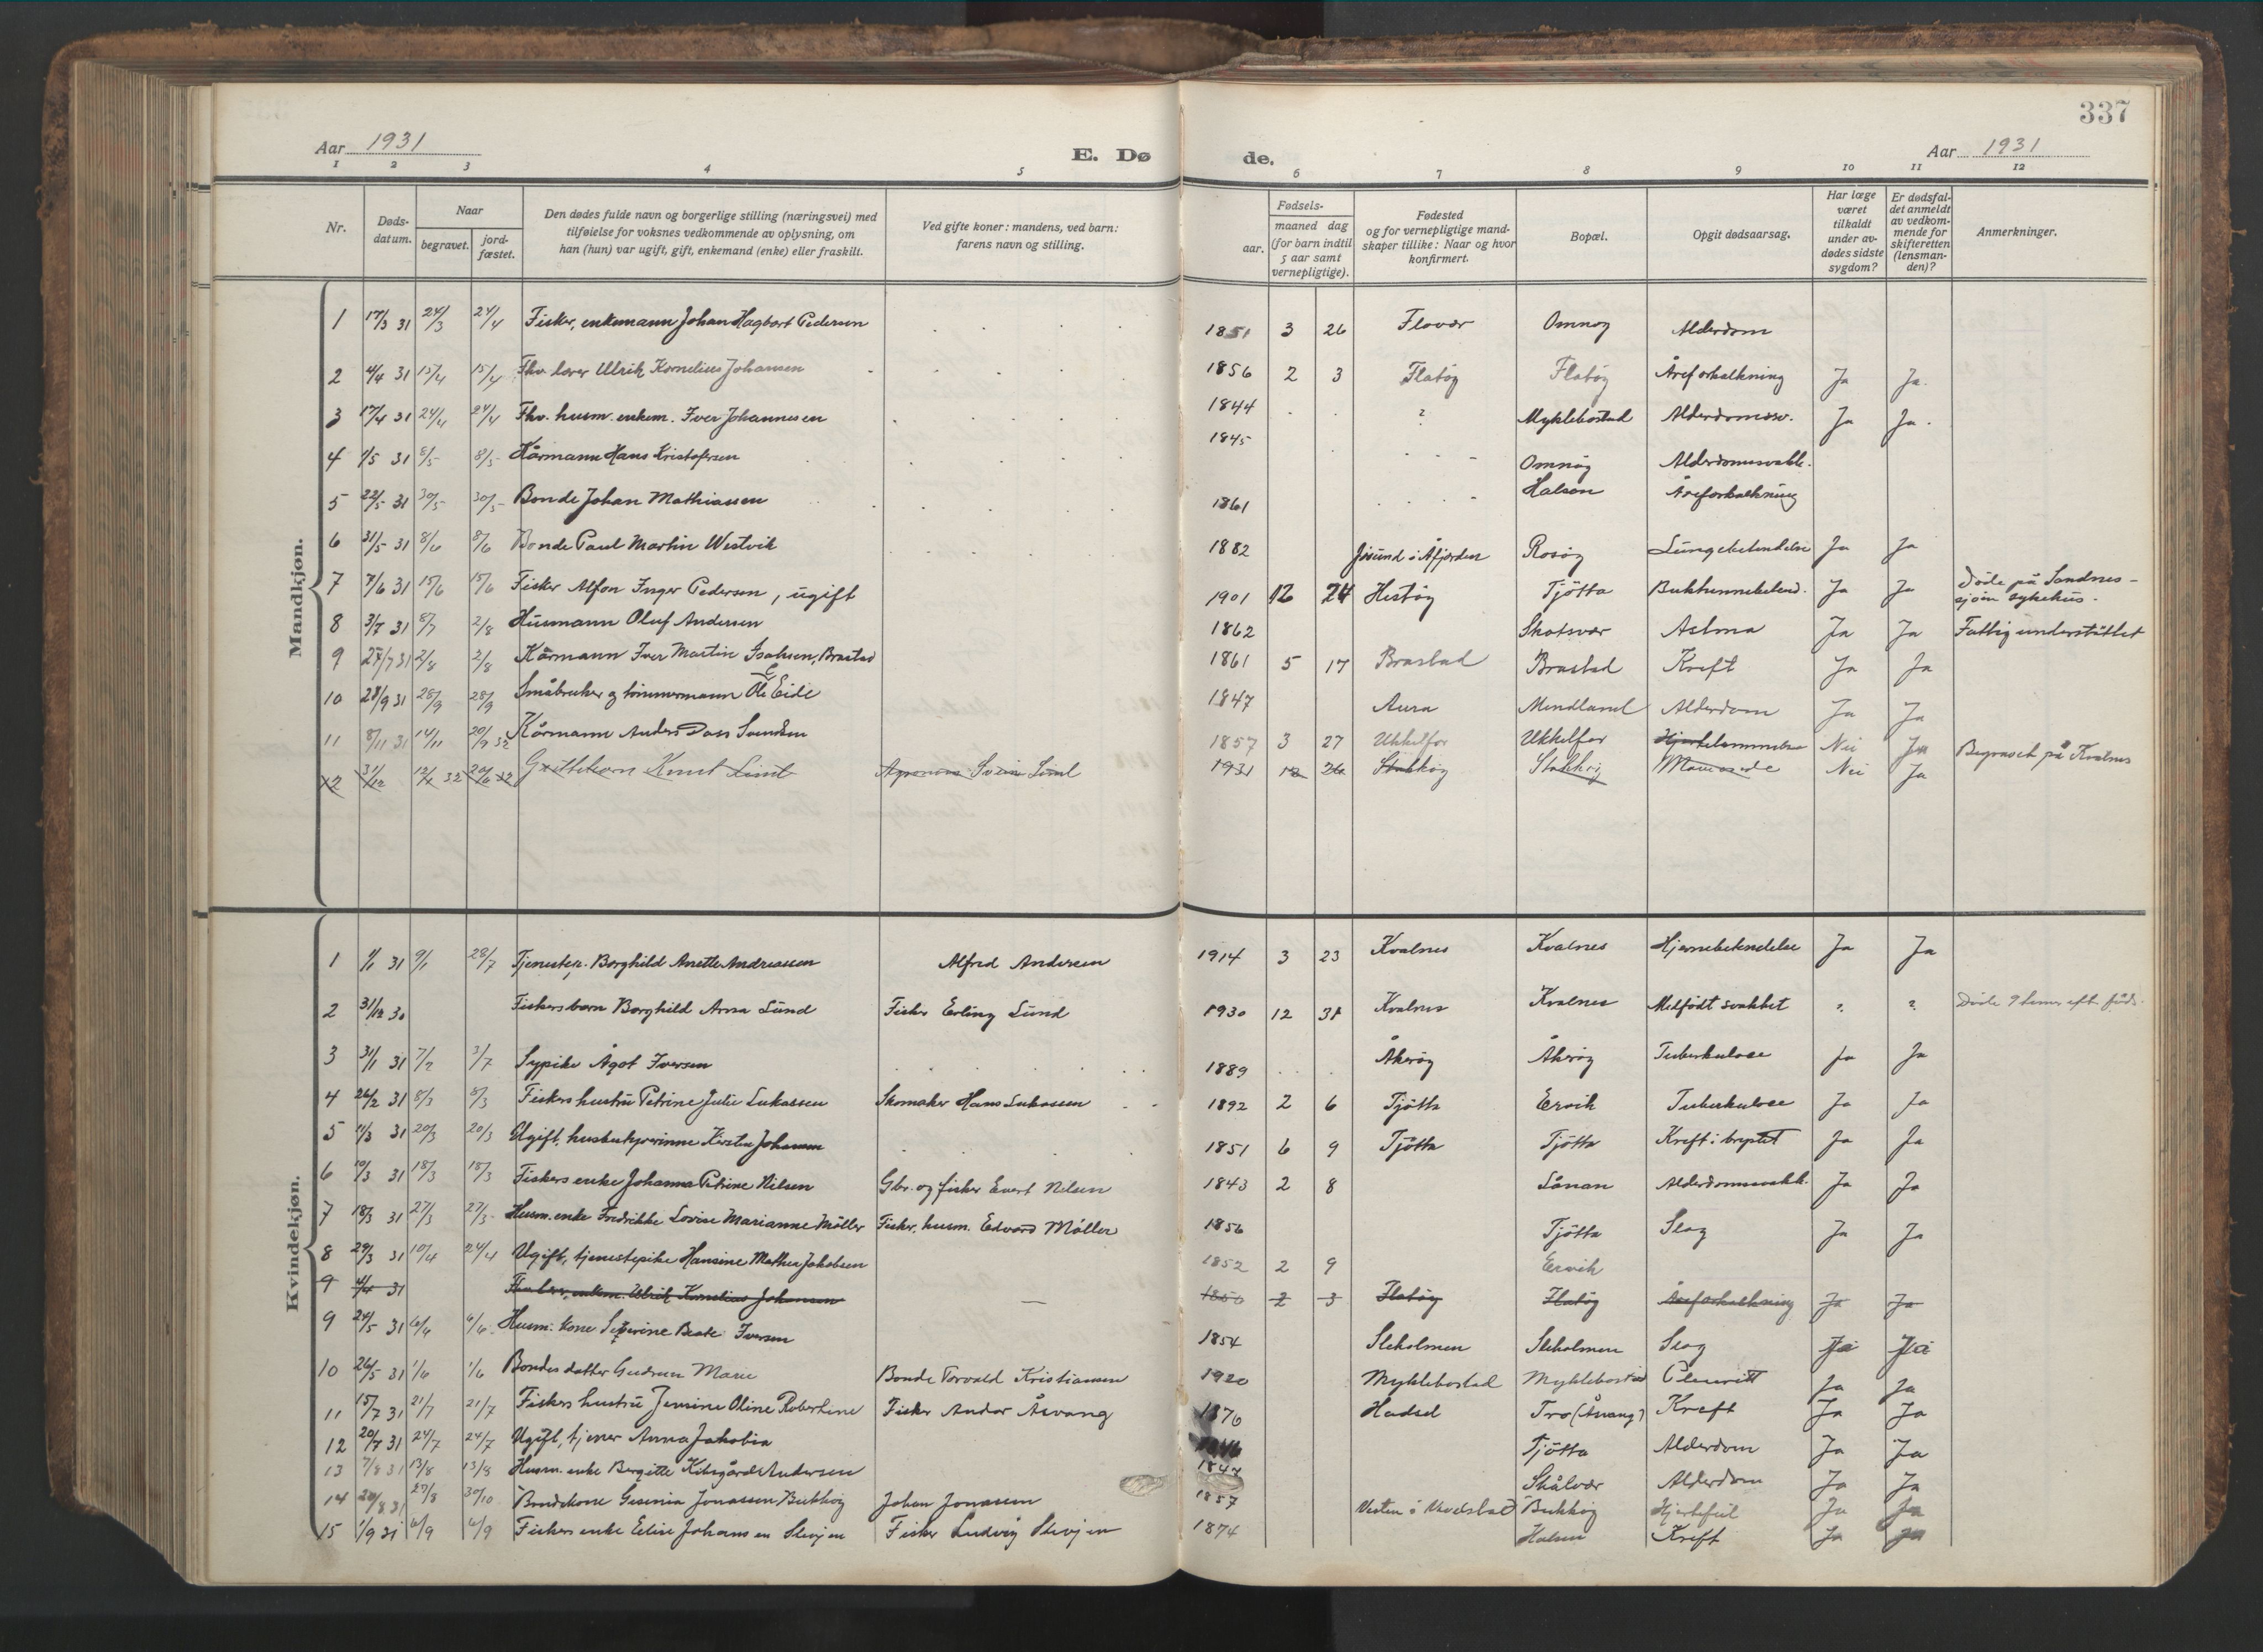 337
Aar 1931
E. Døde.
Aar 1931
1 2 3 4 5 6 7 8 9 10 11 12
Nr.
Døds-datum.
Naar
begravet.
jord-fæstet.
Den dødes fulde navn og borgerlige stilling (næringsvei) med tilføielse for voksnes vedkommende av oplysning, om han (hun) var ugift, gift, enkemand (enke) eller fraskilt.
Ved gifte koner: mandens, ved barn: farens navn og stilling.
Fødsels-
aar.
maaned dag
(for barn indtil 5 aar samt vernepligtige).
Fødested og for vernepligtige mandskaper tillike: Naar og hvor konfirmert.
Bopæl.
Opgit dødsaarsag.
Har læge været tilkaldt under avdødes sidste sygdom?
Er dødsfaldet anmeldt av vedkommende for skifteretten (lensmanden)?
Anmerkninger.
Mandkjøn.
1 17/3 31 24/3 24/4 Fisker, enkemann Johan Hagbart Pedersen 1851 3 26 Flovær Omnøy Alderdom
2 4/4 31 15/4 15/4 Fhv. lærer Ulrik Kornelius Johansen 1856 2 3 Flatøy Flatøy Åreforkalkning Ja Ja.
3 17/4 31 24/4 24/4 Fhv. husm. enkem. Iver Johannesen 1844 ? Myklebostad Alderdomssv. Ja Ja.
4 1/5 31 8/5 8/5 Kårmann Hans Kristofersen 1845 Omnøy Alderdomssvakh.
5 22/5 31 30/5 30/5 Bonde Johan Mathiassen 1861 Halsen Åreforkalkning
6 31/5 31 8/6 8/6 Bonde Paul Martin Westvik 1882 Jøsund i Åfjorden Rosøy Lungebetendelse Ja Ja
7 7/6 31 15/6 15/6 Fisker Alfon Inger Pedersen, ugift 1901 12 24 Hestøy Tjøtta Bukhinnebetend. Ja Ja Døde på Sandnessjøen sykehus.
8 3/7 31 8/7 2/8 Husmann Oluf Andersen 1862 Skotsvær Astma Ja Ja Fattigunderstøttet
9 27/7 31 2/8 2/8 Kårmann Iver Martin Isaksen, Brastad 1861 5 17 Brastad Brastad Kreft Ja Ja
10 28/9 31 28/9 28/9 Småbruker og tømmermann Ole Eide 1847 Aura Mindland Alderdom Ja Ja
11 8/11 31 14/11 20/9 32 Kårmann Anders Dass Svendsen 1857 3 27 Ukkelfor Ukkelfor Hjertelammelse Nei Ja Begravet på Kvalnes
12 31/12 12/1 32 20/6 32 Guttebarn Knut Lind Agronom Svein Lind 1931 12 26 Stokkøy Stokkøy Nei Ja
Kvindekjøn.
1 1/1 31 9/1 28/7 Tjenestep. Borghild Anette Andreassen Alfred Andersen 1914 3 23 Kvalnes Kvalnes Hjernebetendelse Ja Ja
2 31/12 30 Fiskersbarn Borghild Anna Lund Fisker Erling Lund 1930 12 31 Kvalnes Kvalnes Medfødt svakhet ? ? Døde 9 timer eft. føds.
3 31/1 31 7/2 3/7 Sypike Ågot Iversen 1889 Åkerøy Åkerøy Tuberkulose Ja Ja
4 26/2 31 8/3 8/3 Fiskers hustru Petrine Julie Lukassen Skomaker Hans Lukassen 1892 2 6 Tjøtta Ervik Tuberkulose Ja Ja
5 11/3 31 20/3 20/3 Ugift, husbestyrerinne Kirsten Johansen 1851 6 9 Tjøtta Tjøtta Kreft i brystet Ja Ja
6 10/3 31 18/3 18/3 Fiskers enke Johanna Petrine Nilsen Gbr. og fisker Evert Nilsen 1843 2 8 Lånan Alderdomssvakh. Ja Ja
7 18/3 31 27/3 27/3 Husm. enke Fredrikke Lovise Marianne Møller Fisker, husm. Edvard Møller 1856 Tjøtta Slag Ja Ja
8 29/3 31 10/4 24/4 Ugift, tjenestepike Hansine Mathea Jakobsen 1852 2 9 Ervik
9 4/4 31 Fhv. lærer, enkem. Ulrik Kornelius Johansen — 1856 2 3 Flatøy Flatøy Åreforkalkning Ja Ja
9 24/5 31 6/6 6/6 Husm. kone Severine Beate Iversen 1854 Sleholmen Sleholmen Slag Ja Ja
10 26/5 31 1/6 1/6 Bondes datter Gudrun Marie Bonde Torvald Kristiansen 1920 Myklebostad Myklebostad Pleuritt Ja Ja
11 15/7 31 21/7 21/7 Fiskers hustru Jensine Oline Robertine Fisker Andor Åsvang 1876 Hadsel Tro (Åsvang) Kreft Ja Ja
12 20/7 31 24/7 24/7 Ugift, tjener Anna Jakobia 1846 Tjøtta Alderdom Ja Ja
13 7/8 31 13/8 13/8 Husm. enke Bergitte Kilsgård Andersen 1847 Skålvær Alderdom Ja Ja
14 20/8 31 27/8 30/10 Bondekone Gesinia Jonassen Bukkøy Johan Jonassen 1857 Vesten i Vevelstad Bukkøy Hjertefeil Ja Ja
15 1/9 31 6/9 6/9 Fiskers enke Eline Johansen Stevjen Fisker Ludvig Stevjen 1874 Halsen Kreft Ja Ja